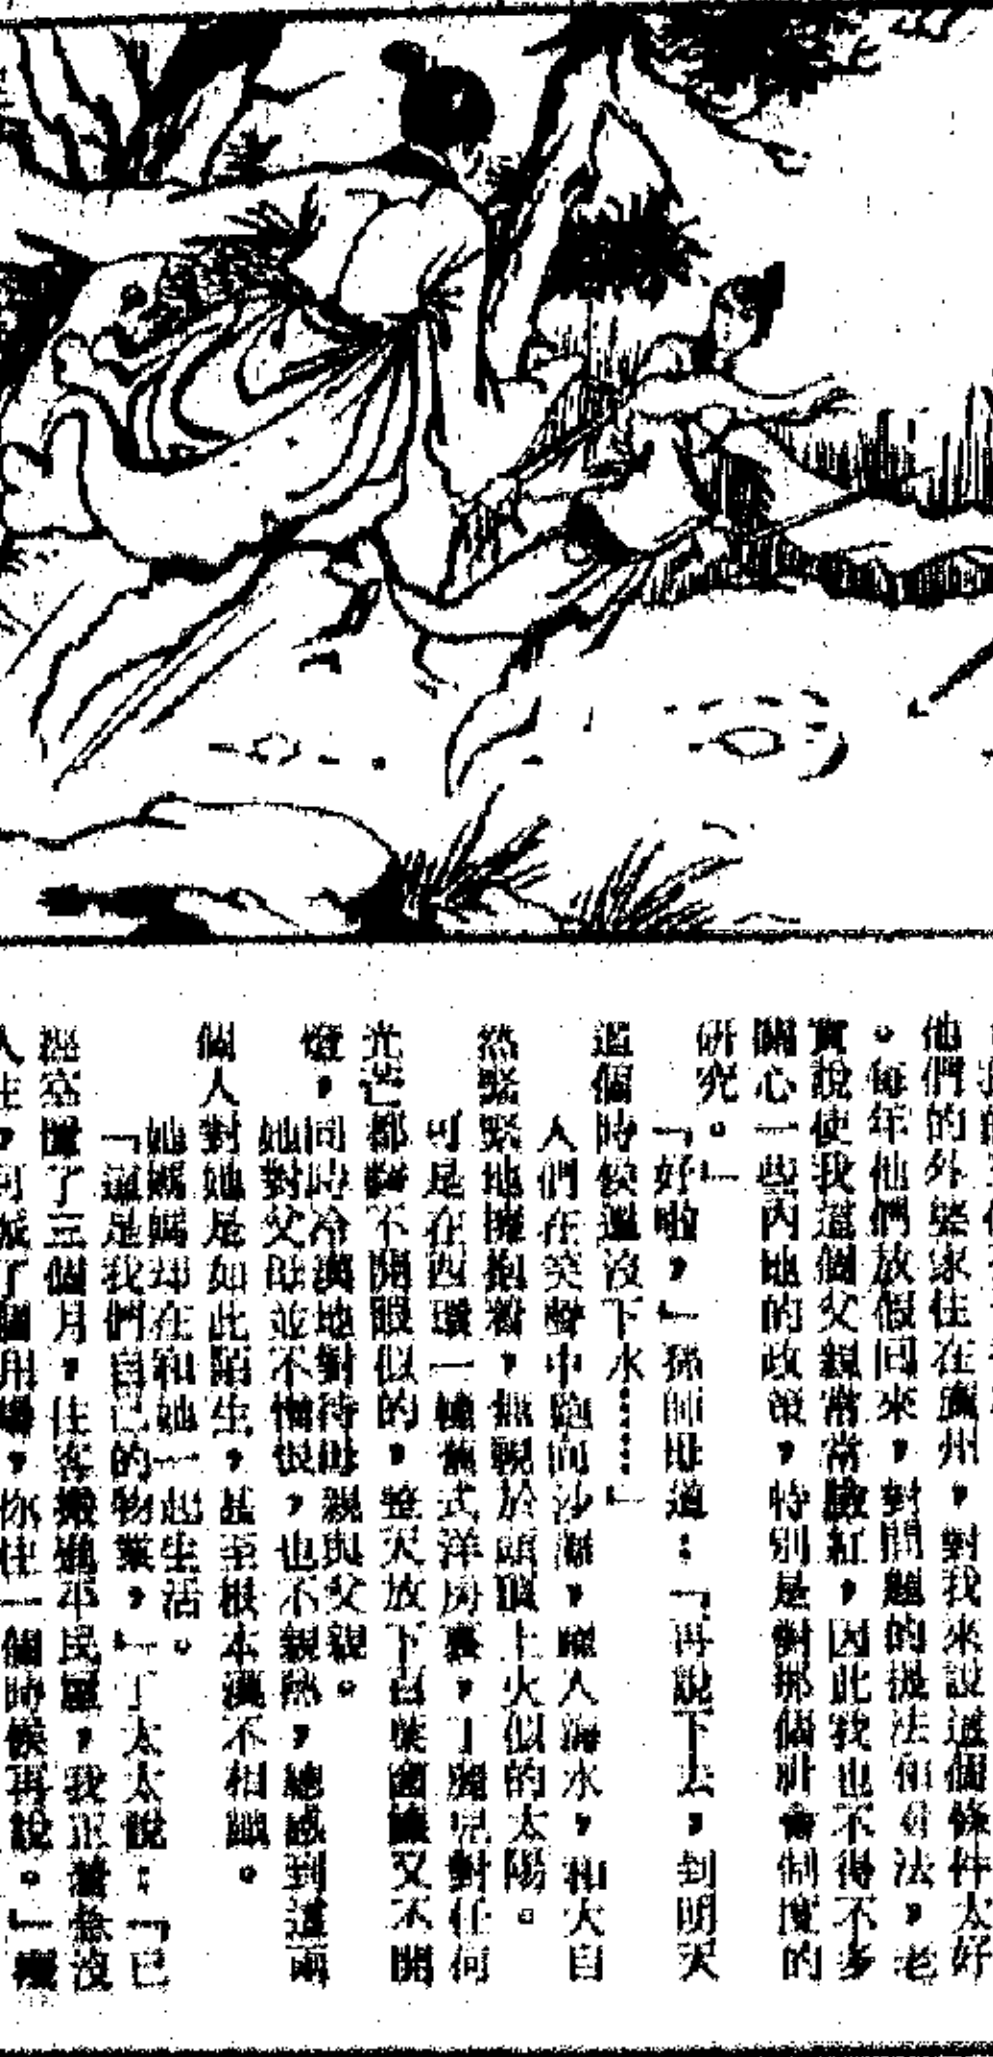 他們的外婆家住在廣州，對我來說這個條件太好
。每年他們放假回來，對問題的提法和看法，老
實說使我這個父親常常臉紅，因此我也不得不多
關心一些內地的政策，特別是對那個社會制度的
研究。」
「好啦，」孫師母道：「再說下去，到明天
這個時候還沒下水……」
人們在笑聲中跑向沙灘，躍入海水，和大自
然緊緊地擁抱着，無視於頭頂上火似的太陽。
可是在西環一幢舊式洋房裏，丁麗兒對任何
光芒都睜不開眼似的，整天放下百葉窗簾又不開
燈，同時冷漠地對待母親與父親。
她對父母並不憎恨，也不親熱，總感到這兩
個人對她是如此陌生，甚至根本漠不相識。
她媽媽却在和她一起生活。
「這是我們自己的物業，」丁太太說：「已
經空置了三個月，住客搬進平民屋，我正着急沒
人住，可派了個用場，你住一個時候再說。」